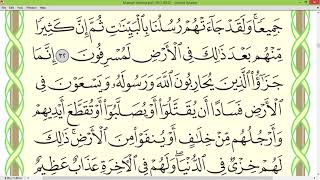 جَمِيعًا وَلَقَدْ جَاءَتْهُمْ رُسُلُنَا بِالْبَيِّنَاتِ ثُمَّ إِنَّ كَثِيرًا
مِنْهُم بَعْدَ ذَلِكَ فِي الْأَرْضِ لَمُسْرِفُونَ ٣٢ إِنَّمَا
جَزَاؤُا الَّذِينَ يُحَارِبُونَ اللَّهَ وَرَسُولَهُ وَيَسْعَوْنَ فِي
الْأَرْضِ فَسَادًا أَن يُقَتَّلُوا أَوْ يُصَلَّبُوا أَوْ تُقَطَّعَ أَيْدِيهِمْ
وَأَرْجُلُهُم مِّنْ خِلَافٍ أَوْ يُنفَوْا مِنَ الْأَرْضِ ذَلِكَ
لَهُمْ خِزْيٌ فِي الدُّنْيَا وَلَهُمْ فِي الْآخِرَةِ عَذَابٌ عَظِيمٌ